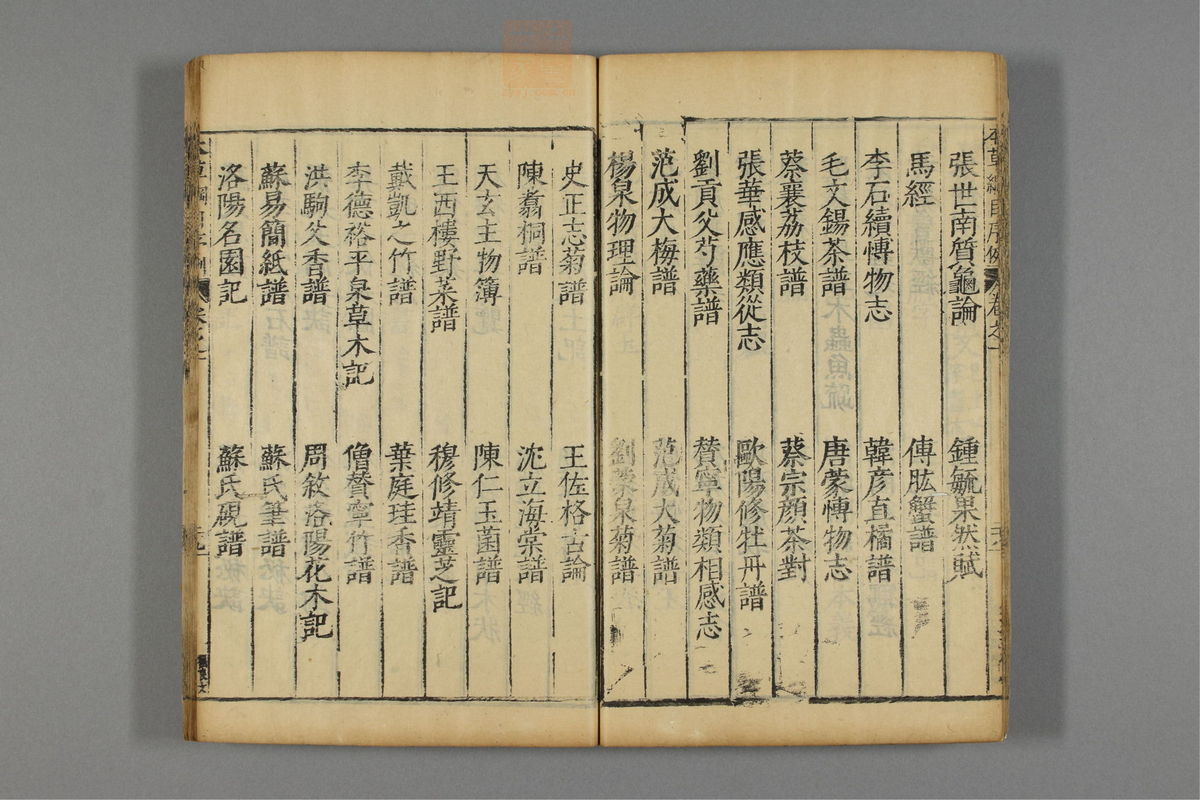 張世南質龜論　鍾毓果然賦
馬經　傅肱蟹譜
李石續博物志　韓彦直橘譜
毛文錫茶譜　唐蒙博物志
蔡襄荔枝譜　蔡宗顔茶對
張華感應類從志　歐陽修牡丹譜
劉貢父芍藥譜　賛寧物類相感志
范成大梅譜　范成大菊譜
楊泉物理論　劉蒙泉菊譜
史正志菊譜　王佐格古論
陳翥桐譜　沈立海棠譜
天玄主物簿　陳仁玉菌譜
王西樓野菜譜　穆修靖靈芝記
戴凱之竹譜　葉庭珪香譜
李德裕平泉草木記　僧賛寧竹譜
洪駒父香譜　周敘洛陽花木記
蘇易簡紙譜　蘇氏筆譜
洛陽名園記　蘇氏硯譜